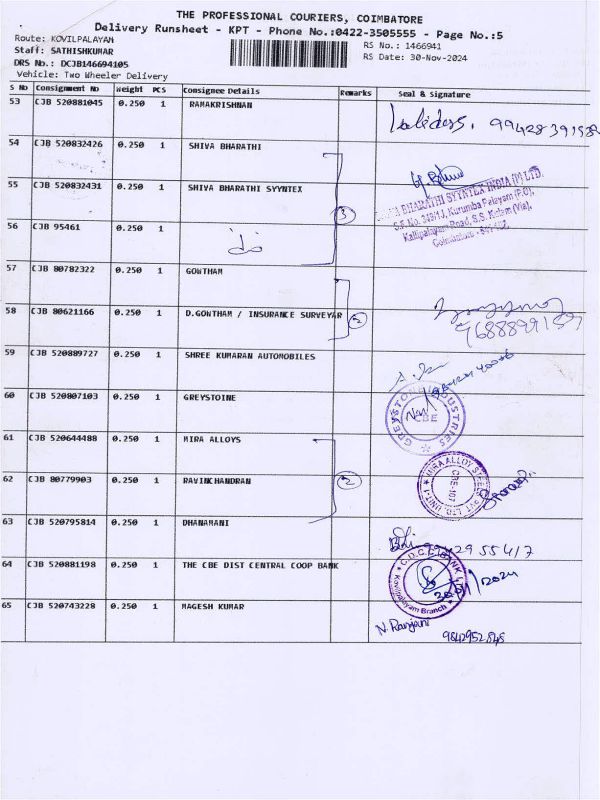 THE PROFESSIONAL COURIERS, COIMBATORE
Delivery Runsheet - KPT - Phone No.:0422-3505555 - Page No.:5
Route: KOVILPALAYAM
RS No.: 1466941
Staff: SATHISHKUMAR
RS Date: 30-Nov-2024
DRS No.: DCJB146694105
Vehicle: Two Wheeler Delivery
S No Consignment No Weight PCS Consignee Details Remarks Seal & Signature
53 CJB 520881045 0.250 1 RAMAKRISHNAN
54 CJB 520832426 0.250 1 SHIVA BHARATHI
55 CJB 520832431 0.250 1 SHIVA BHARATHI SYYNTEX
3
BHARATHI SYYNTEX INDIA (P) LTD.
S.F.No. 349/1J, Kurumba Palayam (P.O),
Kallipalayam Road, S.S. Kulam (Via),
Coimbatore
56 CJB 95461 0.250 1
57 CJB 80782322 0.250 1 GOWTHAM
58 CJB 80621166 0.250 1 D.GOWTHAM / INSURANCE SURVEYAR
2
59 CJB 520889727 0.250 1 SHREE KUMARAN AUTOMOBILES
60 CJB 520807103 0.250 1 GREYSTOINE
GREYSTONE INDUSTRIES
CBE
61 CJB 520644488 0.250 1 MIRA ALLOYS
62 CJB 80779903 0.250 1 RAVINKHANDRAN
2
MIRA ALLOY STEELS PVT LTD UNIT-1
CBE-107
63 CJB 520795814 0.250 1 DHANAMANI
64 CJB 520881198 0.250 1 THE CBE DIST CENTRAL COOP BANK
C.D.C.C. BANK LTD
Kovilpalayam Branch
65 CJB 520743228 0.250 1 MAGESH KUMAR
N. Ranjani